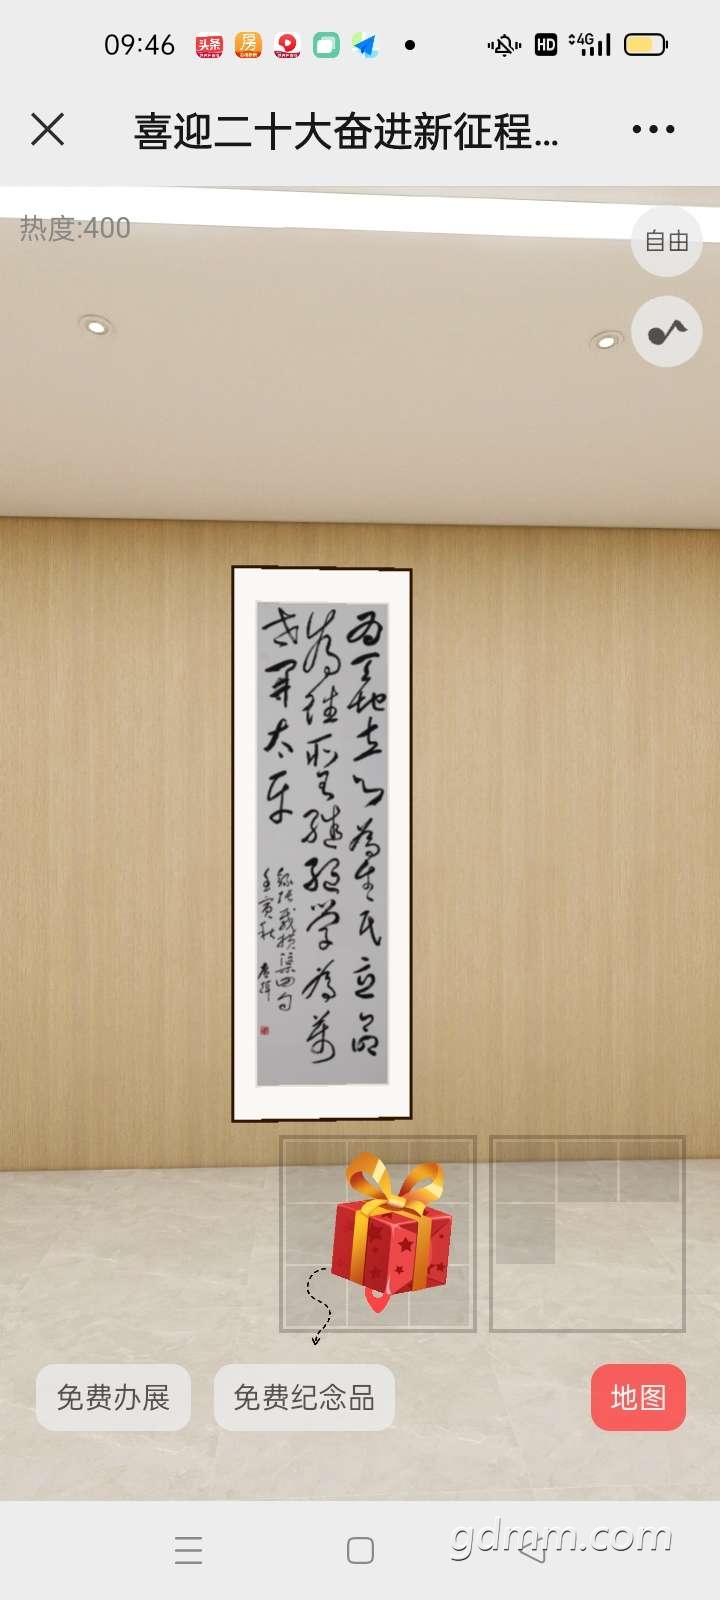 09:46
头条
房
HD
4G
喜迎二十大奋进新征程...
热度:400
自由
为天地立心為生民立命
為往聖继绝学為萬
世开太平
录张载横渠四句
壬寅秋
免费办展
免费纪念品
地图
gdmm.com